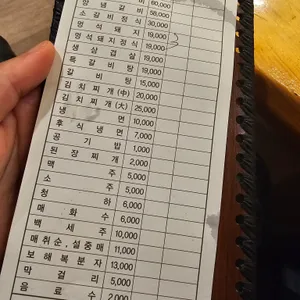 양 념 갈 비 60,000
소 갈 비 정 식 58,000
멍 석 돼 지 30,000
멍 석 돼 지 정 식 19,000
생 삼 겹 살 19,000
육 갈 비 탕 19,000
갈 비 탕 15,000
김 치 찌 개 (中) 20,000
김 치 찌 개 (大) 25,000
냉 면 10,000
후 식 냉 면 7,000
공 기 밥 1,000
된 장 찌 개 2,000
맥 주 5,000
소 주 5,000
청 하 6,000
매 화 수 6,000
백 세 주 10,000
매 취 순 , 설 중 매 11,000
보 해 복 분 자 13,000
막 걸 리 5,000
음 료 수 2,000